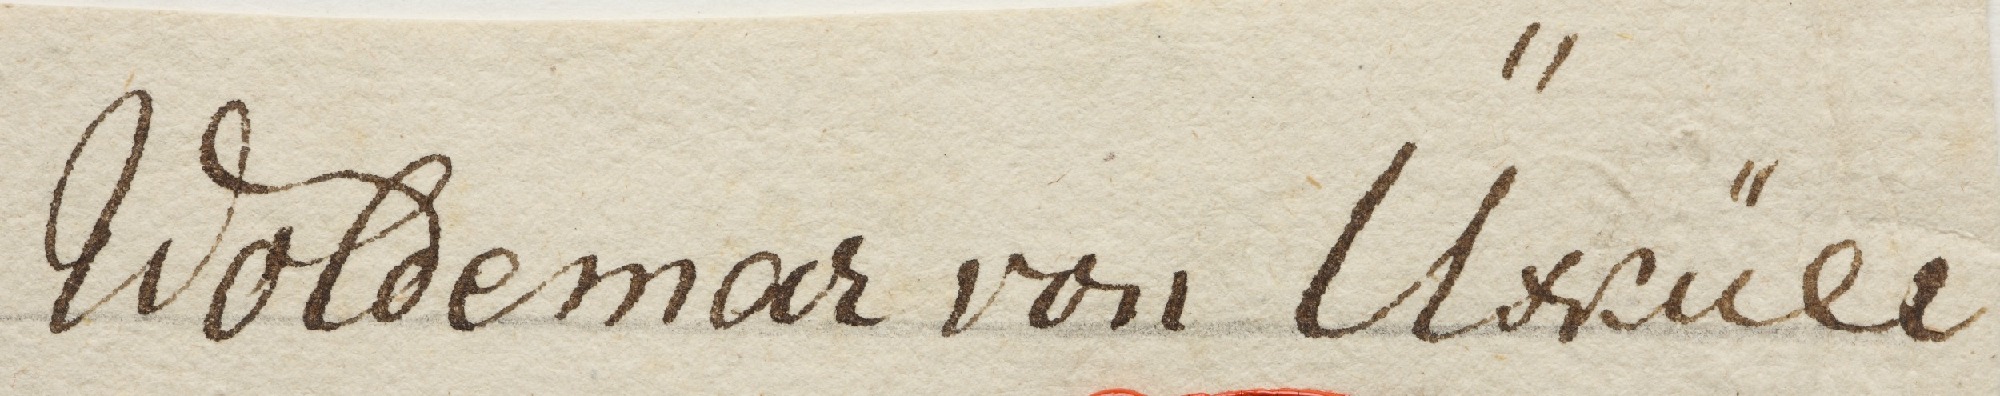 Woldemar von Üxküll